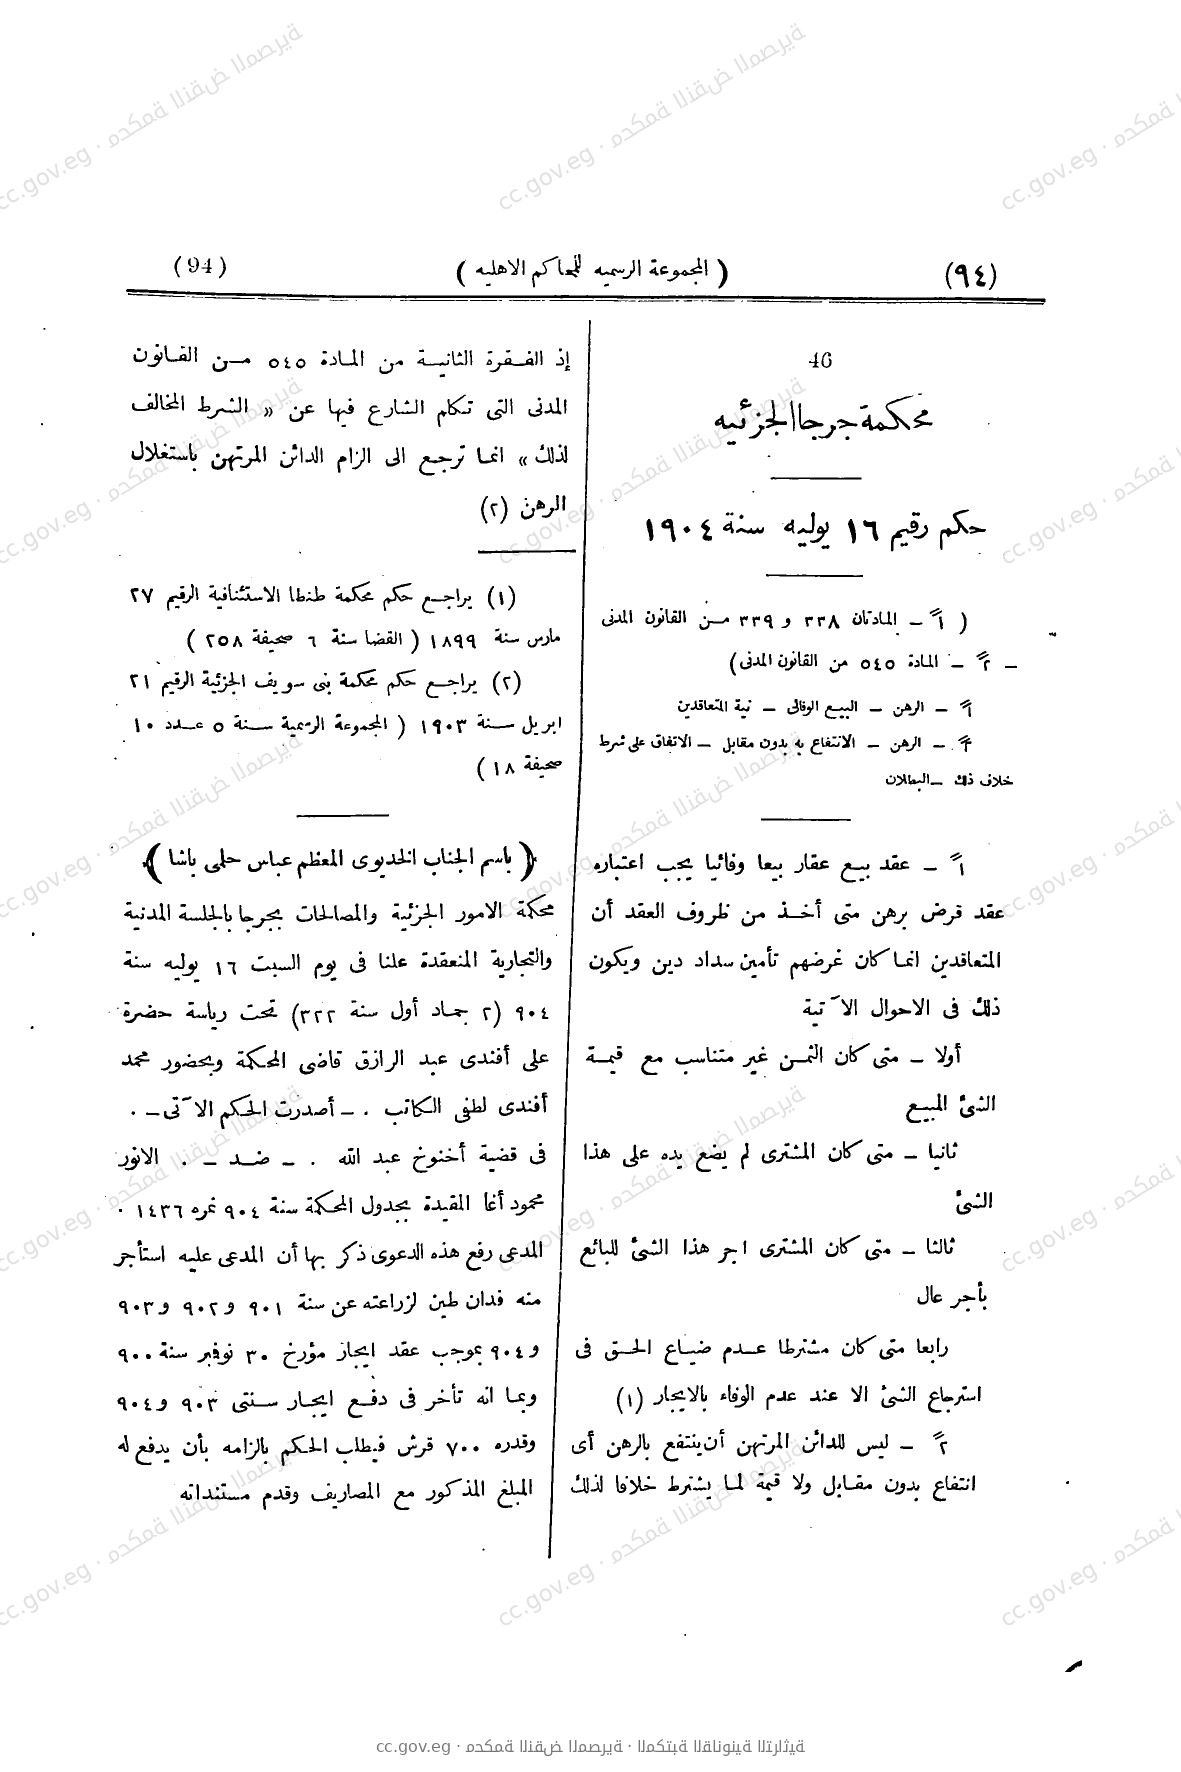 (٩٤)
( المجموعة الرسميه للمحاكم الاهليه )
(94)
46
محكمة جرجا الجزئيه
حكم رقيم ١٦ يوليه سنة ١٩٠٤
( ١ً – المادتان ٣٣٨ و ٣٣٩ مـن القانون المدنى
– ٢ً – المادة ٥٤٥ من القانون المدنى)
١ً – الرهن – البيع الوفائى – نية المتعاقدين
٢ً – الرهن – الانتفاع به بدون مقابل – الاتفاق على شرط
خلاف ذلك – البطلان
١ً – عقد بيع عقار بيعا وفائيا يجب اعتباره
عقد قرض برهن متى أخـذ من ظروف العقد أن
المتعاقدين انما كان غرضهم تأمين سداد دين ويكون
ذلك فى الاحوال الآتية
أولا – متى كان الثمـن غير متناسب مع قيمـة
الشئ المبيع
ثانيا – متى كان المشترى لم يضع يده على هذا
الشئ
ثالثا – متى كان المشترى اجر هذا الشئ للبائع
بأجر عال
رابعا متى كان مشترطا عـدم ضياع الحـق فى
استرجاع الشئ الا عند عدم الوفاء بالايجار (١)
٢ً – ليس للدائن المرتهن أن ينتفع بالرهن أى
انتفاع بدون مقـابل ولا قيمة لمـا يشترط خلافا لذلك
إذ الفـقرة الثانيـة من المـادة ٥٤٥ مـن القـانون
المدنى التى تكلم الشارع فيها عن « الشرط المخالف
لذلك » انمـا ترجـع الى الزام الدائن المرتهن باستغلال
الرهن (٢)
(١) يراجـع حكم محكمة طنطا الاستئنافية الرقيم ٢٧
مارس سنة ١٨٩٩ ( القضا سنة ٦ صحيفة ٢٥٨ )
(٢) يراجـع حكم محكمة بنى سويف الجزئية الرقيم ٢١
ابريل سـنة ١٩٠٣ ( المجموعة الرسمية سـنة ٥ عـدد ١٠
صحيفة ١٨ )
( باسم الجناب الخديوى المعظم عباس حلمى باشا )
محكمة الامور الجزئية والمصالحات بجرجا بالجلسة المدنية
والتجارية المنعقدة علنا فى يوم السبت ١٦ يوليه سنة
٩٠٤ (٢ جماد أول سنة ٣٢٢) تحت رياسة حضرة
على أفندى عبد الرازق قاضى المحكمة وبحضور محمد
أفندى لطفى الكاتب . – أصدرت الحكم الآتى – .
فى قضية أخنوخ عبد الله . – ضـد – . الانور
محمود أغا المقيدة بجدول المحكمة سنة ٩٠٤ نمره ١٤٣٦ .
المدعى رفع هذه الدعوى ذكر بها أن المدعى عليه استأجر
منه فدان طين لزراعته عن سنة ٩٠١ و٩٠٢ و٩٠٣
و٩٠٤ بموجب عقد ايجاز مؤرخ ٣٠ نوفمبر سنة ٩٠٠
وبمـا انه تأخر فى دفـع ايجـار سـنتى ٩٠٣ و٩٠٤
وقدره ٧٠٠ قرش فيطلب الحكم بالزامه بأن يدفع له
المبلغ المذكور مع المصاريف وقدم مستنداته
cc.gov.eg · محكمة النقض المصرية · المكتبة القانونية التراثية